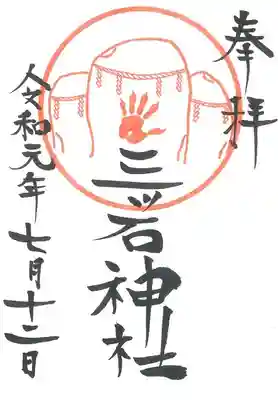 奉拝
三ツ石神社
令和元年七月十二日